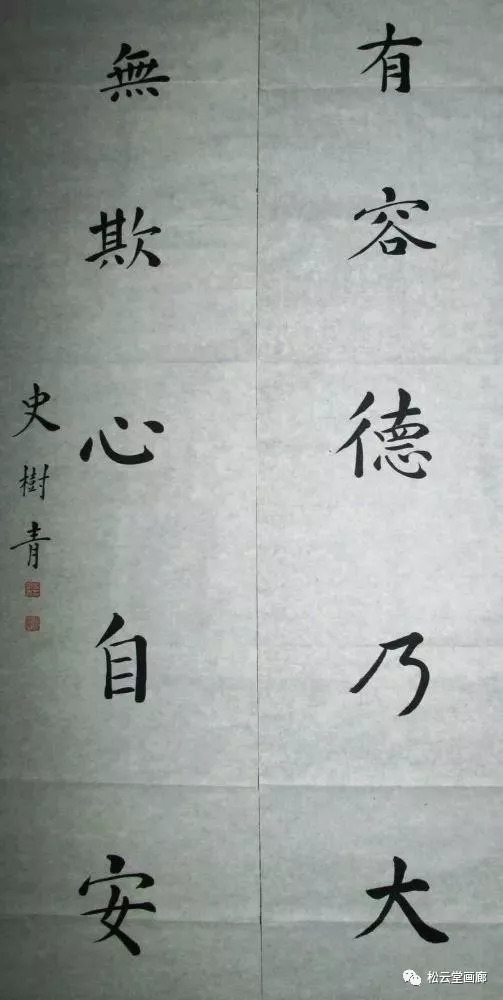 有容德乃大
無欺心自安
史樹青
松云堂画廊